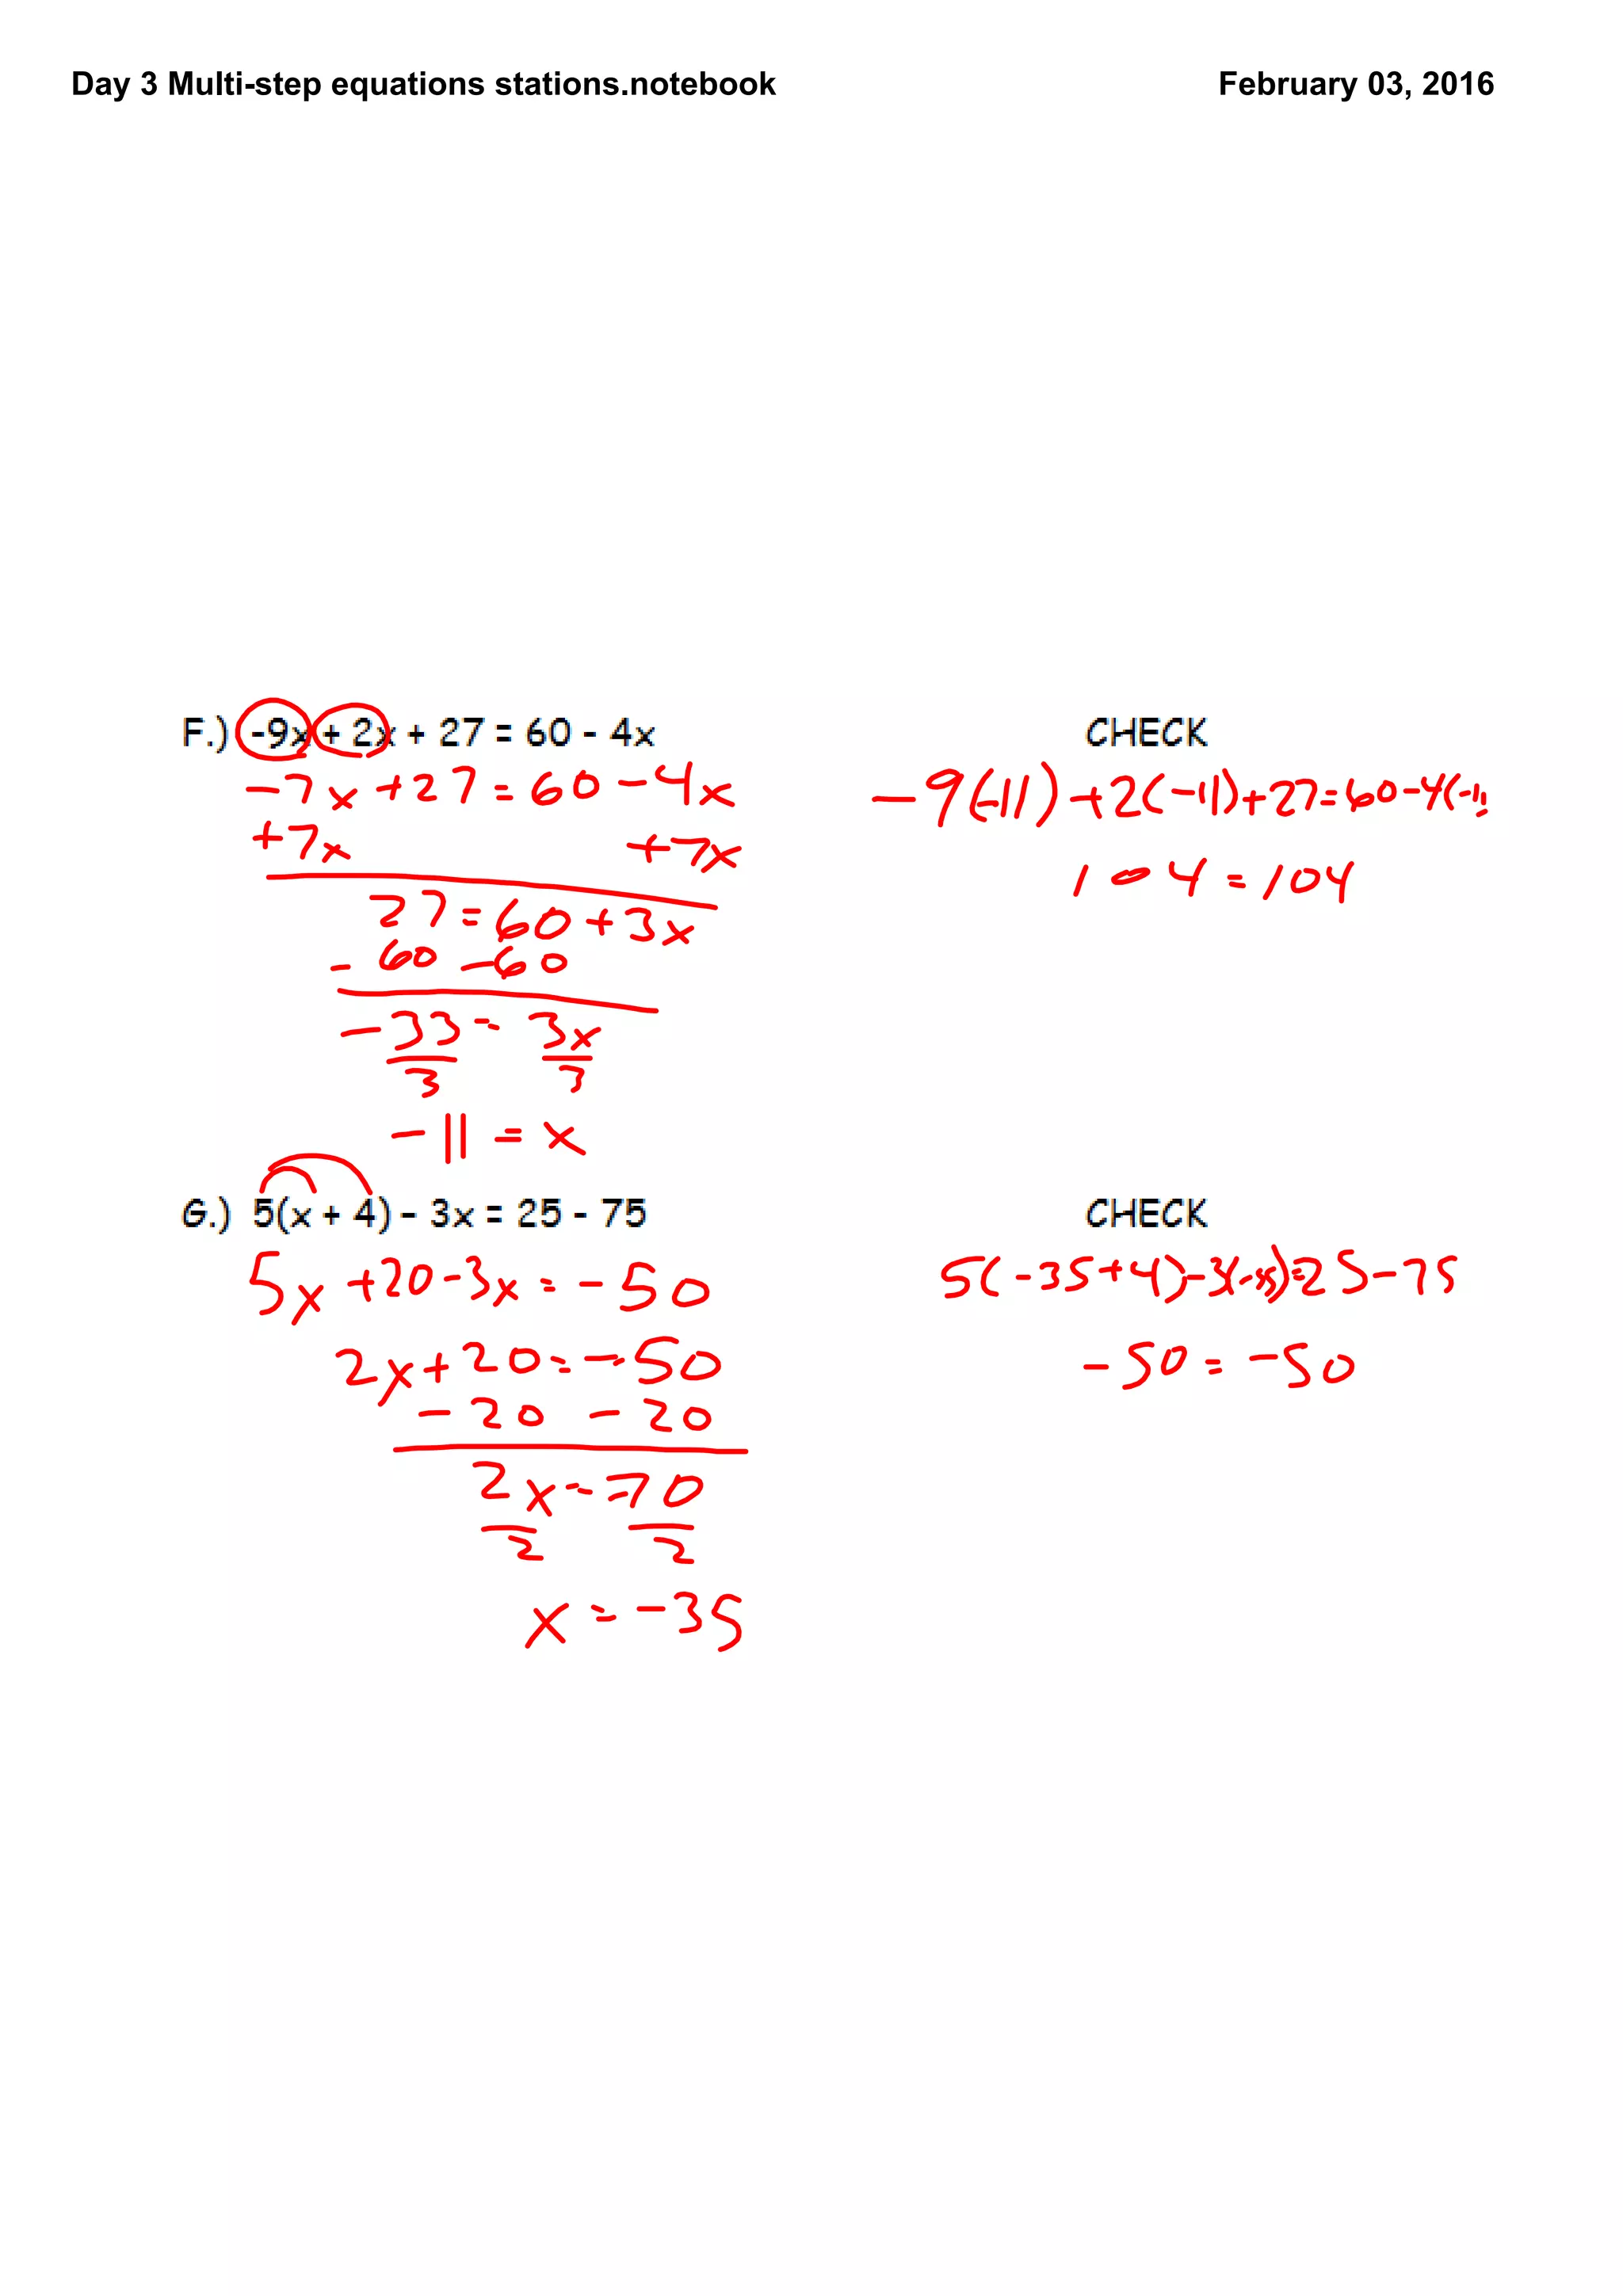 Day 3 Multi-step equations stations.notebook February 03, 2016
F.) -9x + 2x + 27 = 60 - 4x CHECK
-7x + 27 = 60 - 4x -9(-11) + 2(-11) + 27 = 60 - 4(-11
+7x +7x 104 = 104
27 = 60 + 3x
- 60 - 60
-33 = 3x
3 3
-11 = x
G.) 5(x + 4) - 3x = 25 - 75 CHECK
5x + 20 - 3x = -50 5(-35+4)-3(-35)=25-75
2x + 20 = -50 -50 = -50
- 20 - 20
2x = -70
2 2
x = -35